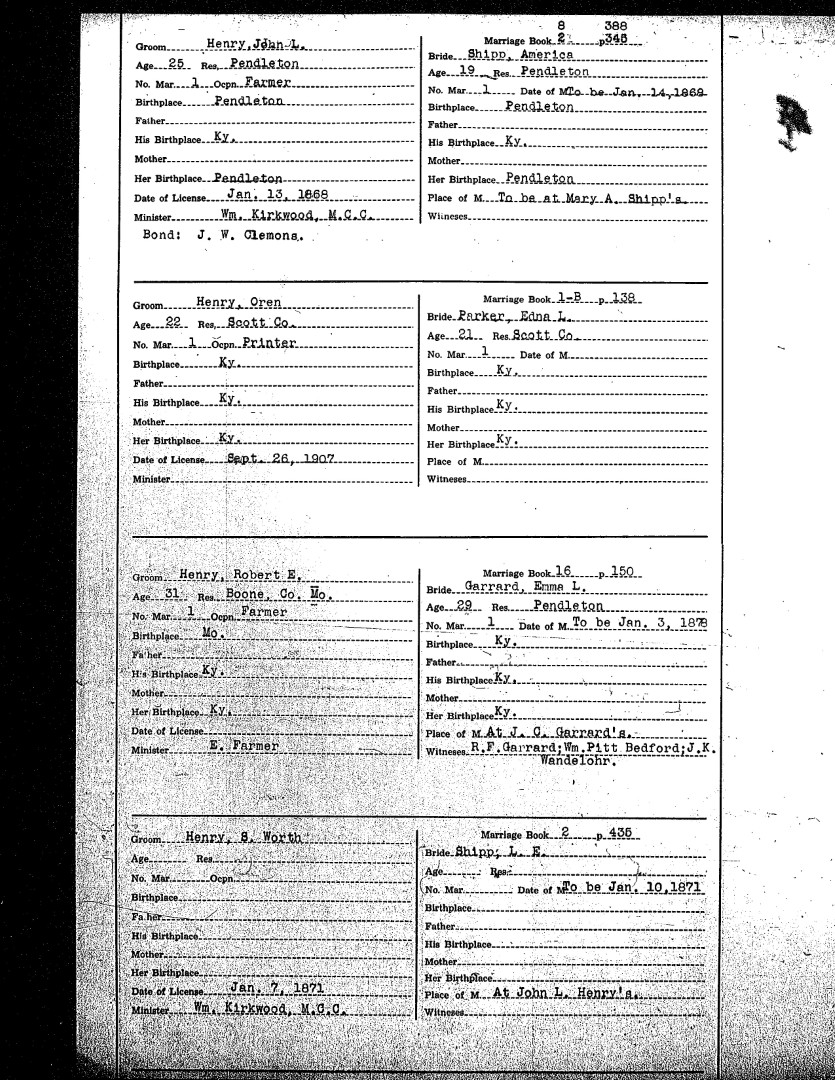 8 388
Groom Henry, John L. Marriage Book 2 p 345
Bride Shipp, America
Age 25 Res. Pendleton Age 19 Res. Pendleton
No. Mar. 1 Ocpn. Farmer No. Mar. 1 Date of M. To be Jan. 14, 1868
Birthplace Pendleton Birthplace Pendleton
Father Father
His Birthplace Ky. His Birthplace Ky.
Mother Mother
Her Birthplace Pendleton Her Birthplace Pendleton
Date of License Jan. 13, 1868 Place of M. To be at Mary A. Shipp's.
Minister Wm. Kirkwood, M.C.C. Witneses
Bond: J. W. Clemons.
Groom Henry, Oren Marriage Book 1-B p 138
Bride Parker, Edna L.
Age 22 Res. Scott Co. Age 21 Res. Scott Co.
No. Mar. 1 Ocpn. Printer No. Mar. 1 Date of M.
Birthplace Ky. Birthplace Ky.
Father Father
His Birthplace Ky. His Birthplace Ky.
Mother Mother
Her Birthplace Ky. Her Birthplace Ky.
Date of License Sept. 26, 1907 Place of M.
Minister Witneses
Groom Henry, Robert E. Marriage Book 16 p 150
Bride Garrard, Emma L.
Age 31 Res. Boone, Co. Mo. Age 29 Res. Pendleton
No. Mar. 1 Ocpn. Farmer No. Mar. 1 Date of M. To be Jan. 3, 1878
Birthplace Mo. Birthplace Ky.
Father Father
His Birthplace Ky. His Birthplace Ky.
Mother Mother
Her Birthplace Ky. Her Birthplace Ky.
Date of License Place of M. At J. C. Garrard's.
Minister E. Farmer Witneses R.F.Garrard;Wm.Pitt Bedford;J.K.
Wandelohr.
Groom Henry, S. Worth Marriage Book 2 p 435
Bride Shipp, L. E.
Age Res. Age Res.
No. Mar. Ocpn. No. Mar. Date of M. To be Jan. 10,1871
Birthplace Birthplace
Father Father
His Birthplace His Birthplace
Mother Mother
Her Birthplace Her Birthplace
Date of License Jan. 7, 1871 Place of M. At John L. Henry's.
Minister Wm. Kirkwood, M.C.C. Witneses